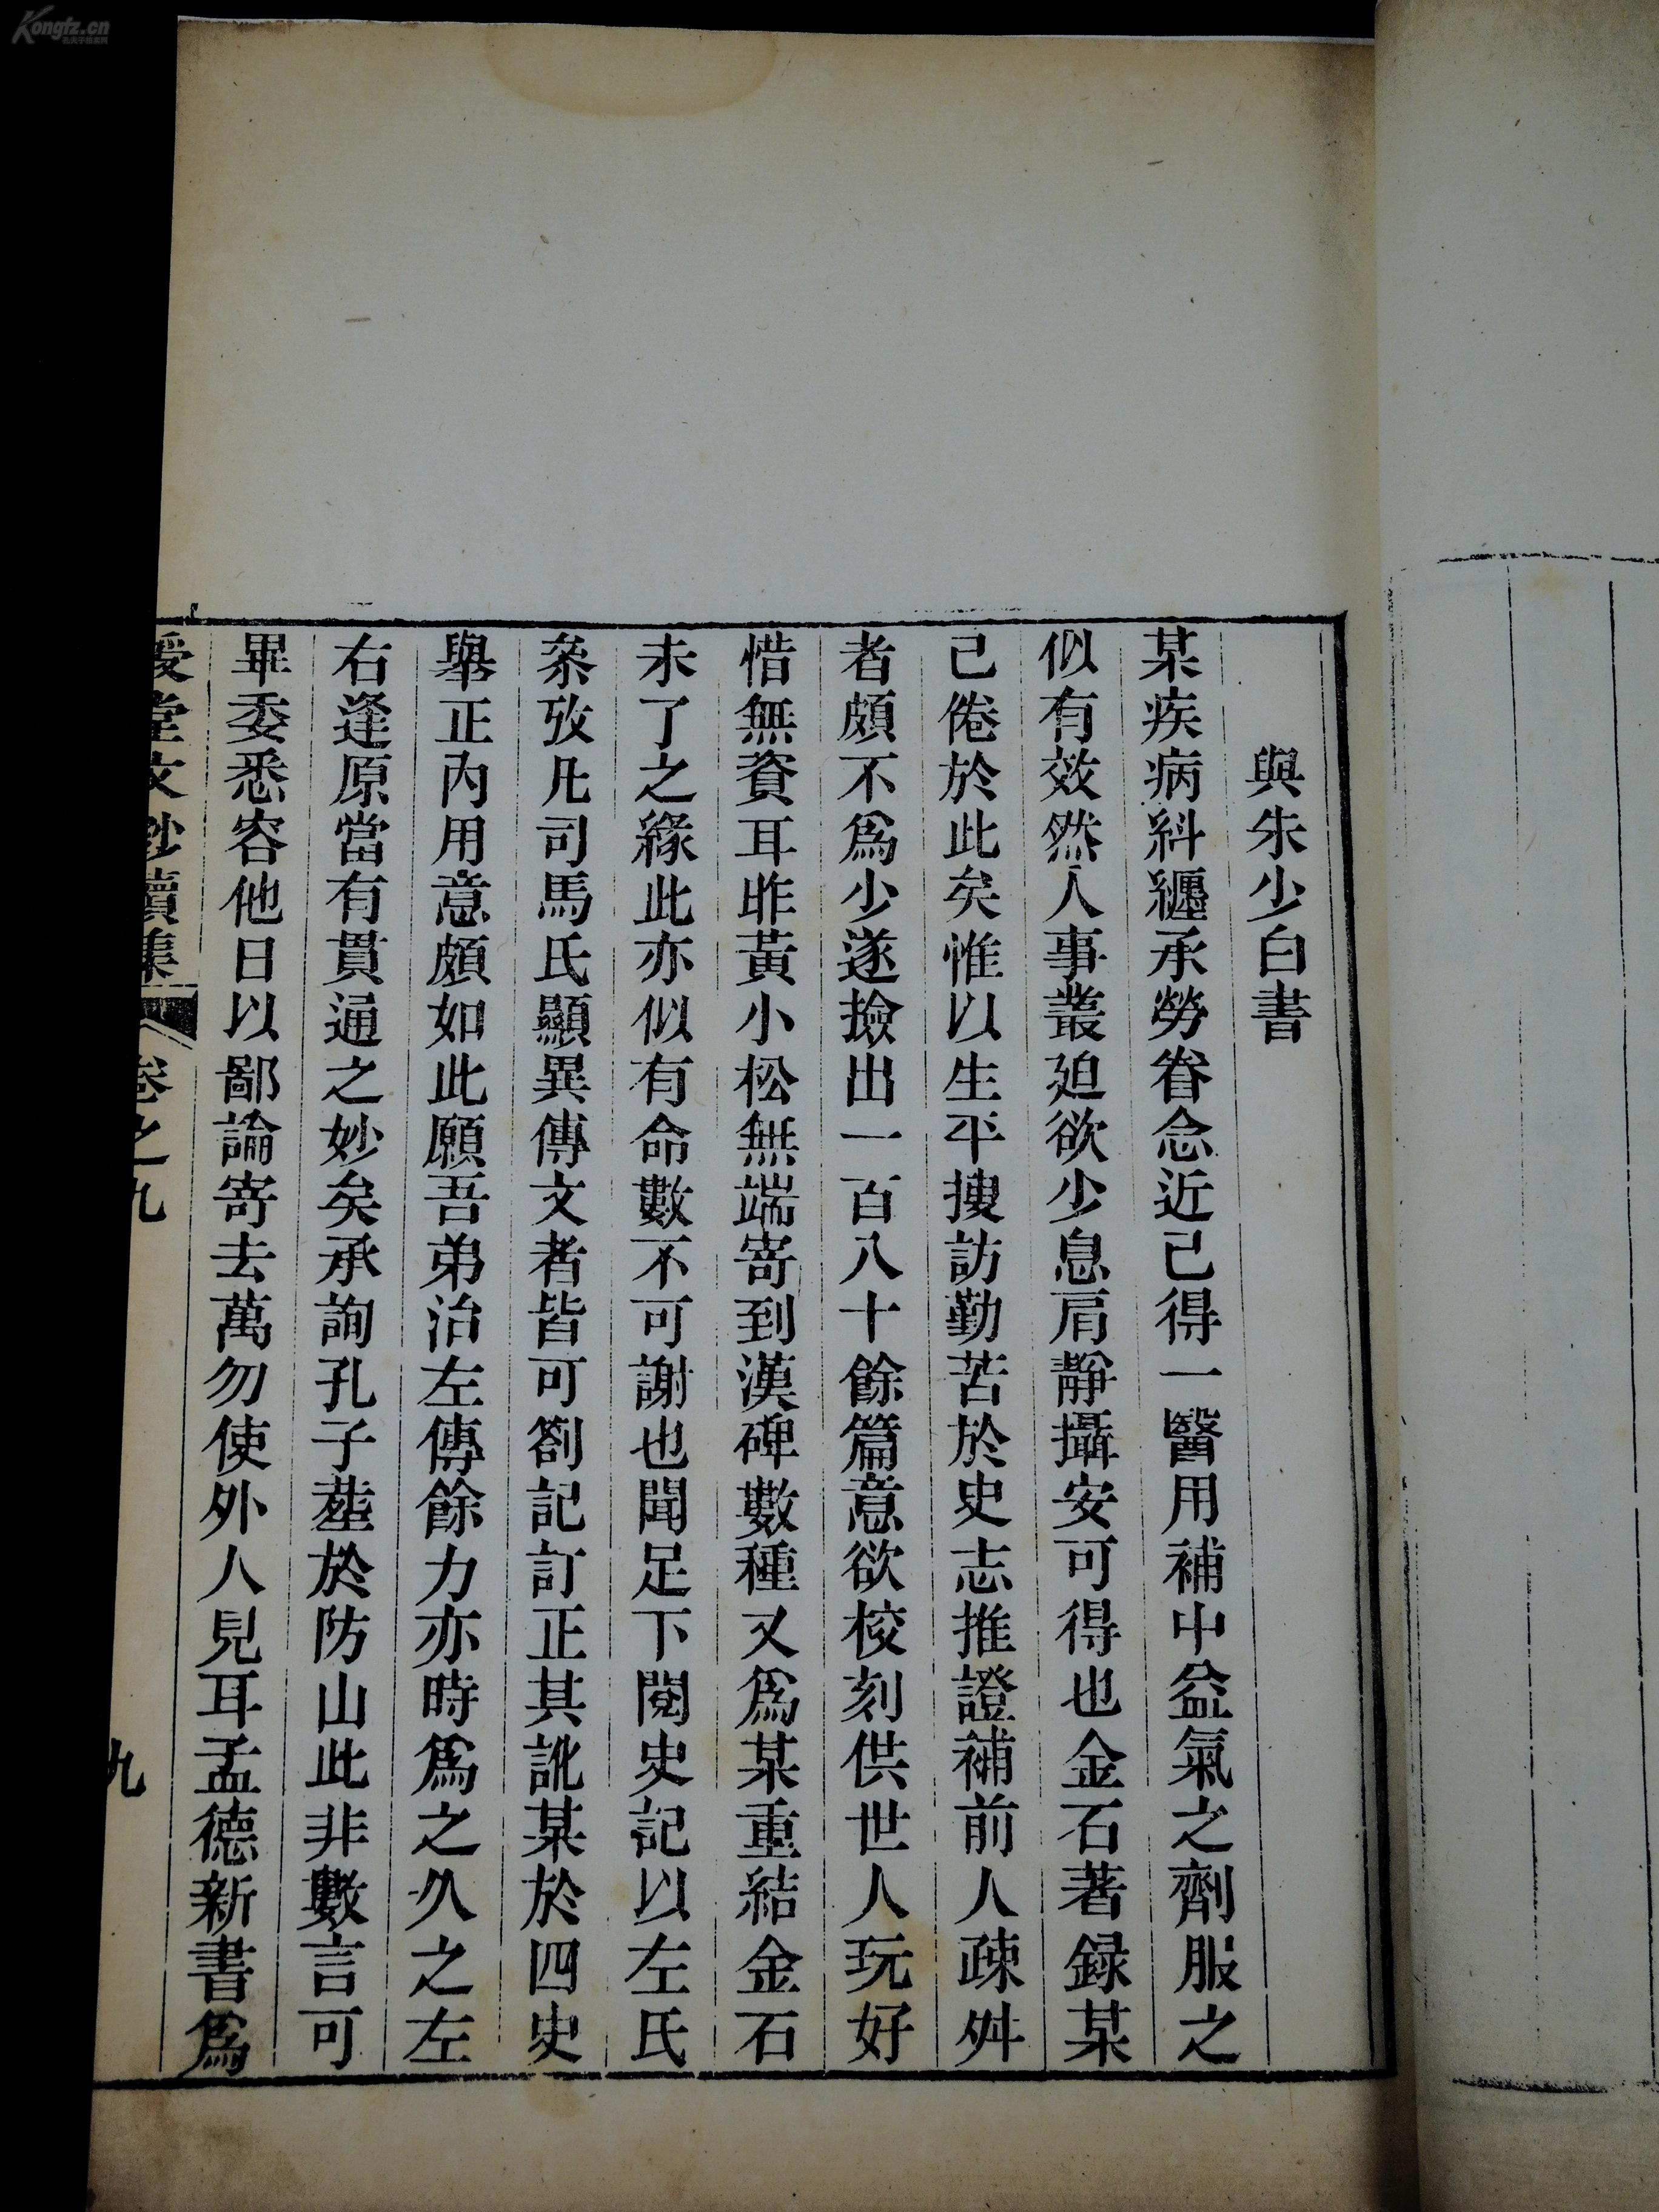 Kongfz.cn
孔夫子旧书网
與朱少白書
某疾病糾纏承勞眷念近已得一醫用補中益氣之劑服之
似有效然人事叢廹欲少息肩靜攝安可得也金石著録某
已倦於此矣惟以生平搜訪勤苦於史志推證補前人疎舛
者頗不爲少遂撿出一百八十餘篇意欲校刻供世人玩好
惜無資耳昨黃小松無端寄到漢碑數種又爲某重結金石
未了之緣此亦似有命數不可謝也聞足下閱史記以左氏
叅攷凡司馬氏顯異傳文者皆可劄記訂正其訛某於四史
舉正內用意頗如此願吾弟治左傳餘力亦時爲之久之左
右逢原當有貫通之妙矣承詢孔子塟於防山此非數言可
畢委悉容他日以鄙論寄去萬勿使外人見耳孟德新書爲
授堂文鈔續集 卷之九 九